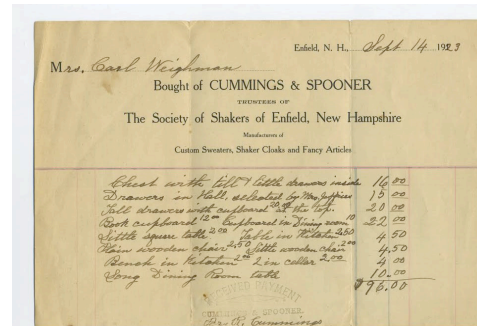 Enfield, N. H., Sept 14 1923
Mrs. Carl Weighman
Bought of CUMMINGS & SPOONER
TRUSTEES OF
The Society of Shakers of Enfield, New Hampshire
Manufacturers of
Custom Sweaters, Shaker Cloaks and Fancy Articles
Chest with till & little drawers inside 16 00
Drawers in Hall, selected by Mrs. Jeffries 15 00
Tall drawers with cupboard at the top. 20 00
Book cupboard 12 00 Cupboard in Dining room 10 22 00
Little square table 2 00 Table in Kitchen 2 50 4 50
Plain wooden chair 2 50 Little wooden chair 2 00 4,50
Bench in Kitchen 2 00 2 in cellar 2 00 4 00
Long Dining Room table 10.00
$96.00
RECEIVED PAYMENT
CUMMINGS & SPOONER.
Cummings